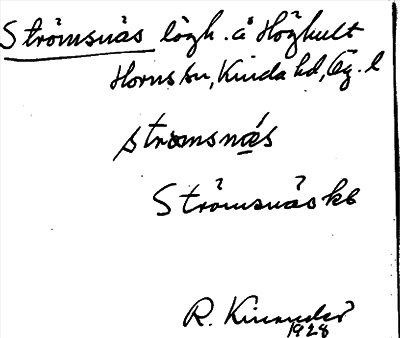 Strömsnäs lägh. å Höghult
Horns sn, Kinda hd, Ög. l
strömsnä́s
Strömsnäs kb
R. Kinander
1928